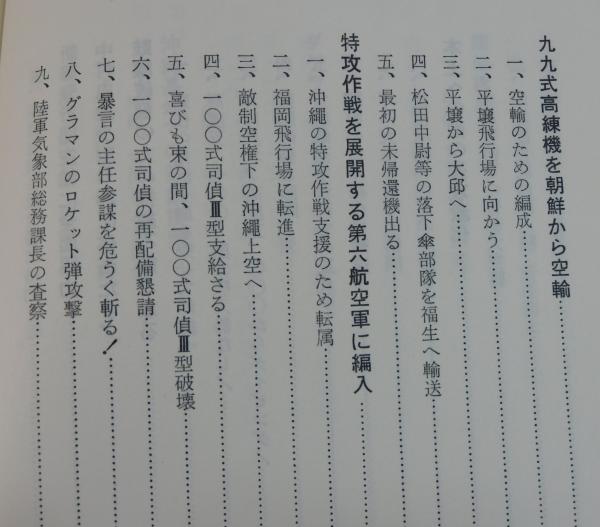 九九式高練機を朝鮮から空輸
一、空輸のための編成
二、平壌飛行場に向かう
三、平壌から大邱へ
四、松田中尉等の落下傘部隊を福生へ輸送
五、最初の未帰還機出る
特攻作戦を展開する第六航空軍に編入
一、沖縄の特攻作戦支援のため転属
二、福岡飛行場に転進
三、敵制空権下の沖縄上空へ
四、一〇〇式司偵Ⅲ型支給さる
五、喜びも束の間、一〇〇式司偵Ⅲ型破壊
六、一〇〇式司偵の再配備懇請
七、暴言の主任参謀を危うく斬る！
八、グラマンのロケット弾攻撃
九、陸軍気象部総務課長の査察